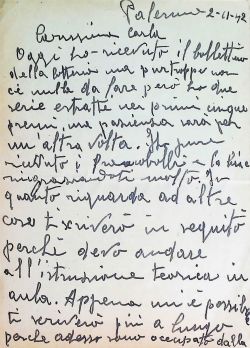 Palermo 2-11-42
Carissima Carla
Oggi ho ricevuto il bollettino
della lotteria ma purtroppo non
c'è nulla da fare però ho due
serie estratte nei primi cinque
premi, ma pazienza sarà per
un altra volta. Ho pure
ricevuto i francobolli e la
ringraziandoti molto. In
quanto riguarda ad altre
cose ti scriverò in seguito
perchè devo andare
all'istruzione teorica in
aula. Appena mi è possibile
ti scriverò più a lungo
perchè adesso sono occupato dalle